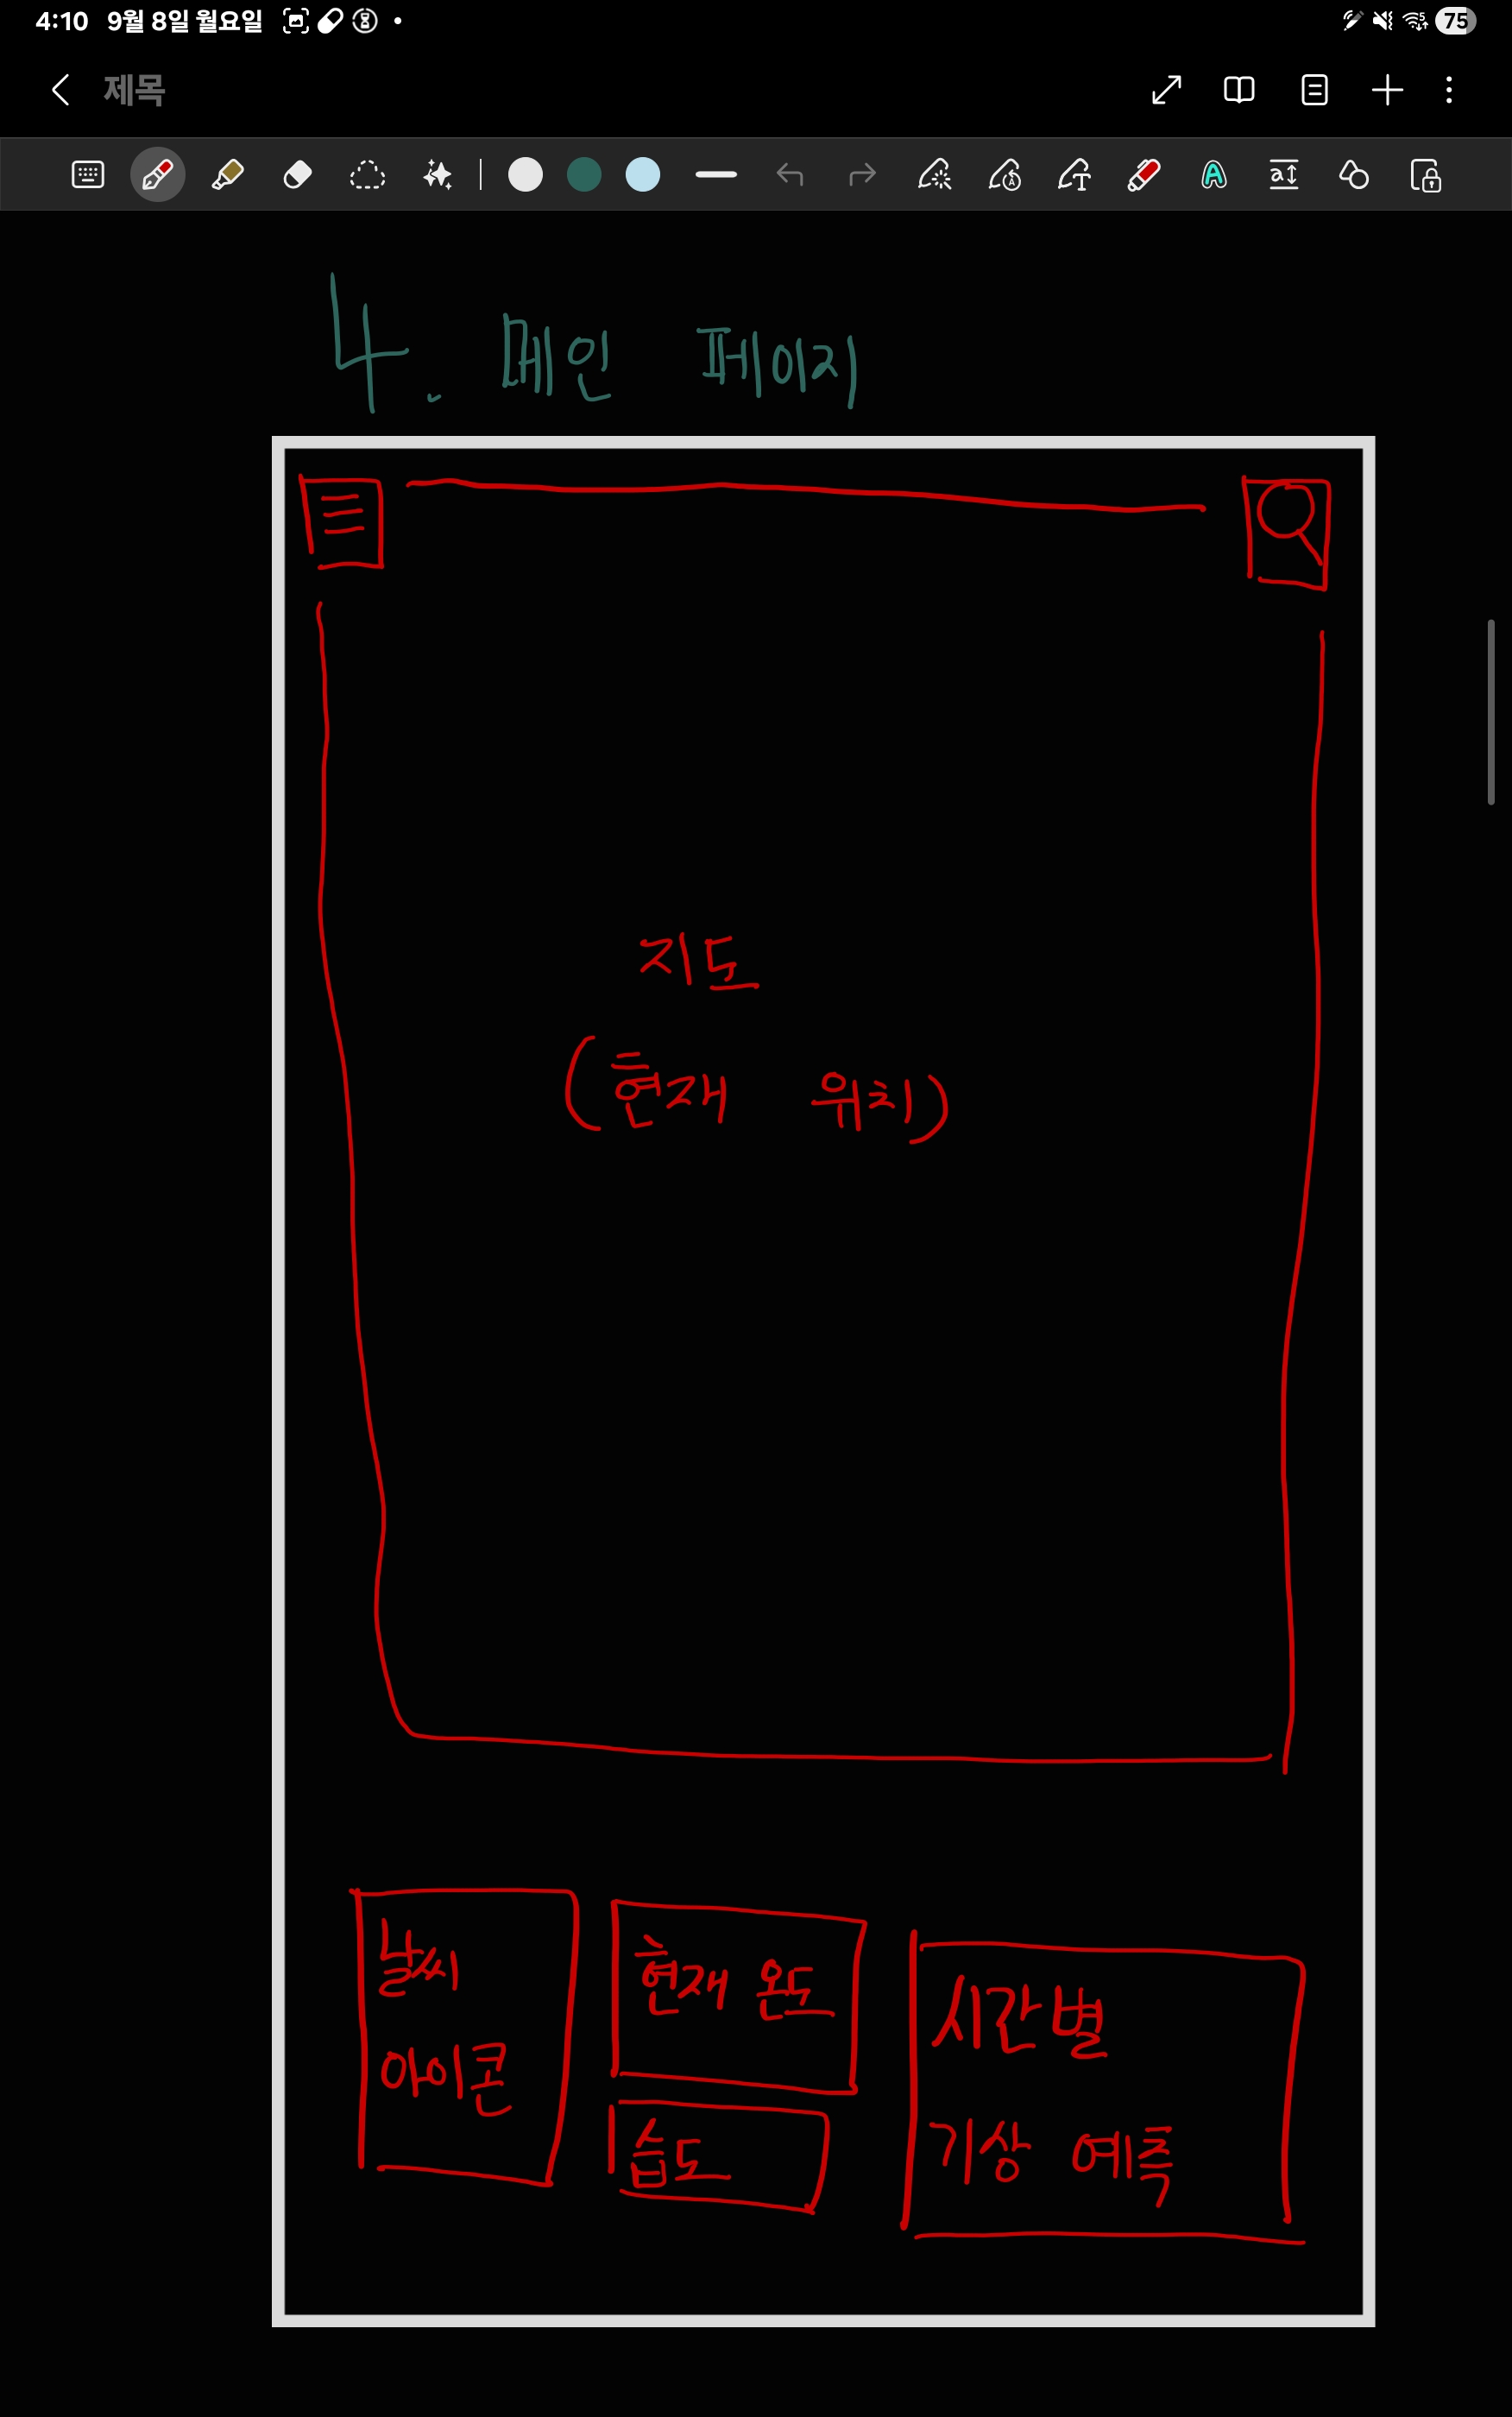 4:10 9월 8일 월요일
75
제목
4. 메인 페이지
지도
(현재 위치)
날씨
아이콘
현재 온도
습도
시간별
기상 예측